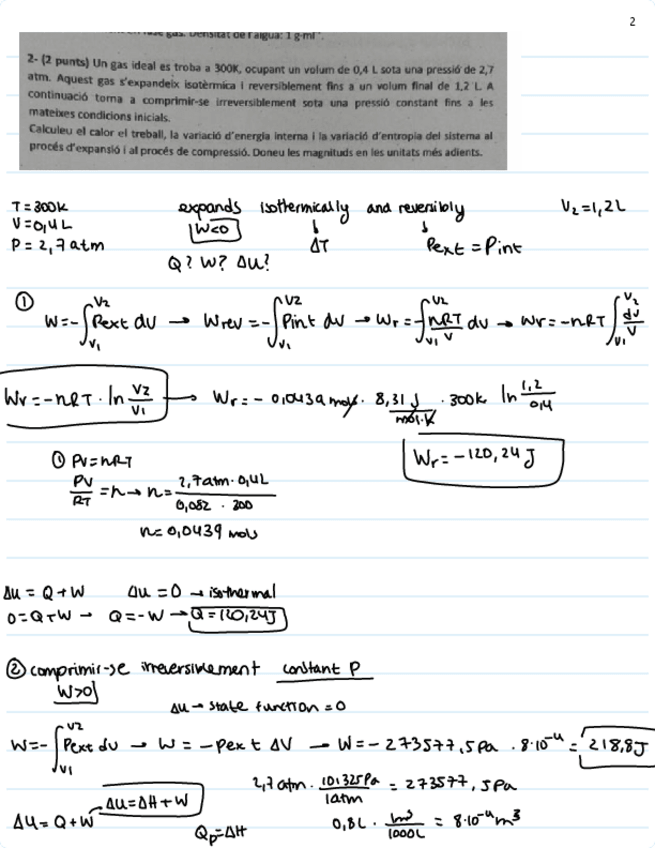 2
en fase gas. Densitat de l'aigua: 1 g·ml⁻¹.
2- (2 punts) Un gas ideal es troba a 300K, ocupant un volum de 0,4 L sota una pressió de 2,7
atm. Aquest gas s'expandeix isotèrmica i reversiblement fins a un volum final de 1,2 L. A
continuació torna a comprimir-se irreversiblement sota una pressió constant fins a les
mateixes condicions inicials.
Calculeu el calor el treball, la variació d'energia interna i la variació d'entropia del sistema al
procés d'expansió i al procés de compressió. Doneu les magnituds en les unitats més adients.
T = 300K expands isothermically and reversibly V₂ = 1,2L
V = 0,4L W<0 ↓ ↓
P = 2,7 atm ΔT Pext = Pint
Q? W? ΔU?
① W = -∫V₁^V₂ Pext dV → Wrev = -∫V₁^V₂ Pint dV → Wr = -∫V₁^V₂ nRT/V dV → Wr = -nRT ∫V₁^V₂ dV/V
Wr = -nRT · ln V2/V1 → Wr = -0,0439 mol · 8,31 J/mol·K · 300K ln 1,2/0,4
① PV = nRT Wr = -120,24 J
PV/RT = n → n = 2,7atm · 0,4L / 0,082 · 300
n = 0,0439 mols
ΔU = Q + W ΔU = 0 → isothermal
0 = Q + W → Q = -W → Q = 120,24J
② comprimir-se irreversiblement constant P
W>0
ΔU → state function = 0
W = -∫V1^V2 Pext dV → W = -Pext ΔV → W = -273577,5Pa · 8·10⁻⁴ = 218,8J
2,7 atm · 101325Pa/1atm = 273577,5Pa
ΔU = ΔH + W
ΔU = Q + W Qp = ΔH 0,8L · m³/1000L = 8·10⁻⁴ m³